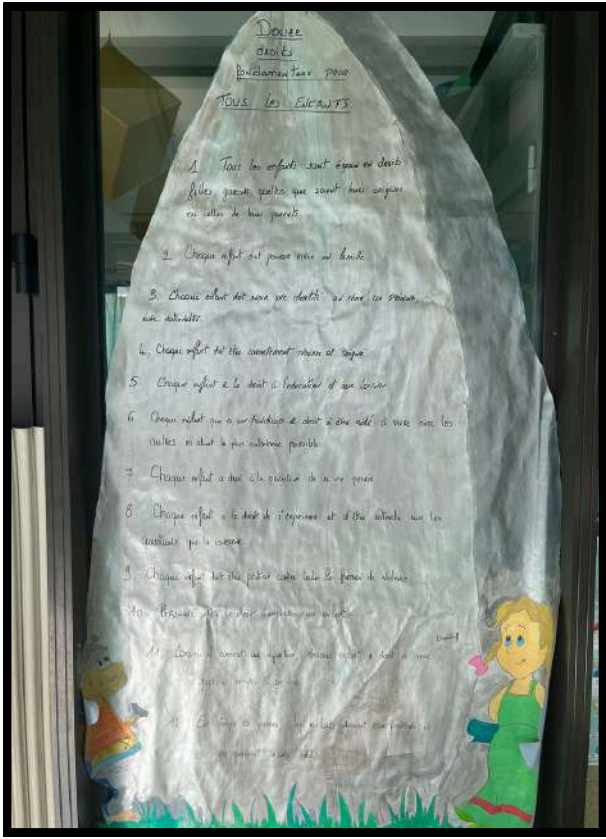 Douze
droits
fondamentaux pour
TOUS les ENFANTS
1 Tous les enfants sont égaux en droits
filles, garçons, quelles que soient leurs origines
ou celles de leurs parents.
2. Chaque enfant doit pouvoir vivre en famille
3. Chaque enfant doit avoir une identité, un nom, un prénom,
une nationalité.
4. Chaque enfant doit être correctement nourri et soigné
5 Chaque enfant a le droit à l'éducation et aux loisirs
6 Chaque enfant qui a un handicap a droit à être aidé à vivre avec les
autres en étant le plus autonome possible
7. Chaque enfant a droit à la protection de sa vie privée
8 Chaque enfant a le droit de s'exprimer et d'être entendu sur les
questions qui le concernent
9 Chaque enfant doit être protégé contre toutes les formes de violence
10.
11 enfant a droit à une
12 les enfants doivent être protégés